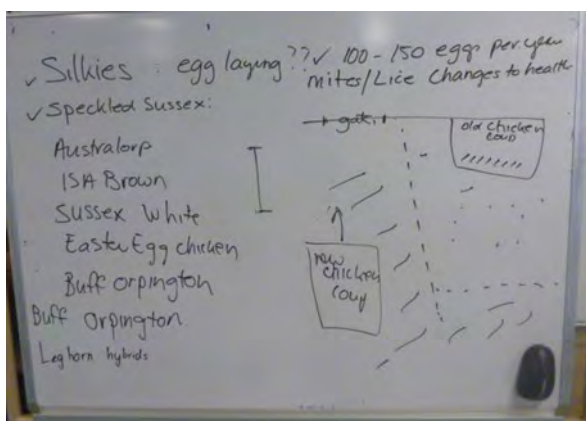 ✓ Silkies : egg laying ??✓ 100-150 eggs per year
mites/Lice Changes to health
✓ Speckled Sussex:
Australorp
ISA Brown
Sussex White
Easter Egg chicken
Buff orpington
Buff Orpington
Leghorn hybrids
gate
old chicken
coup
new
chicken
coup